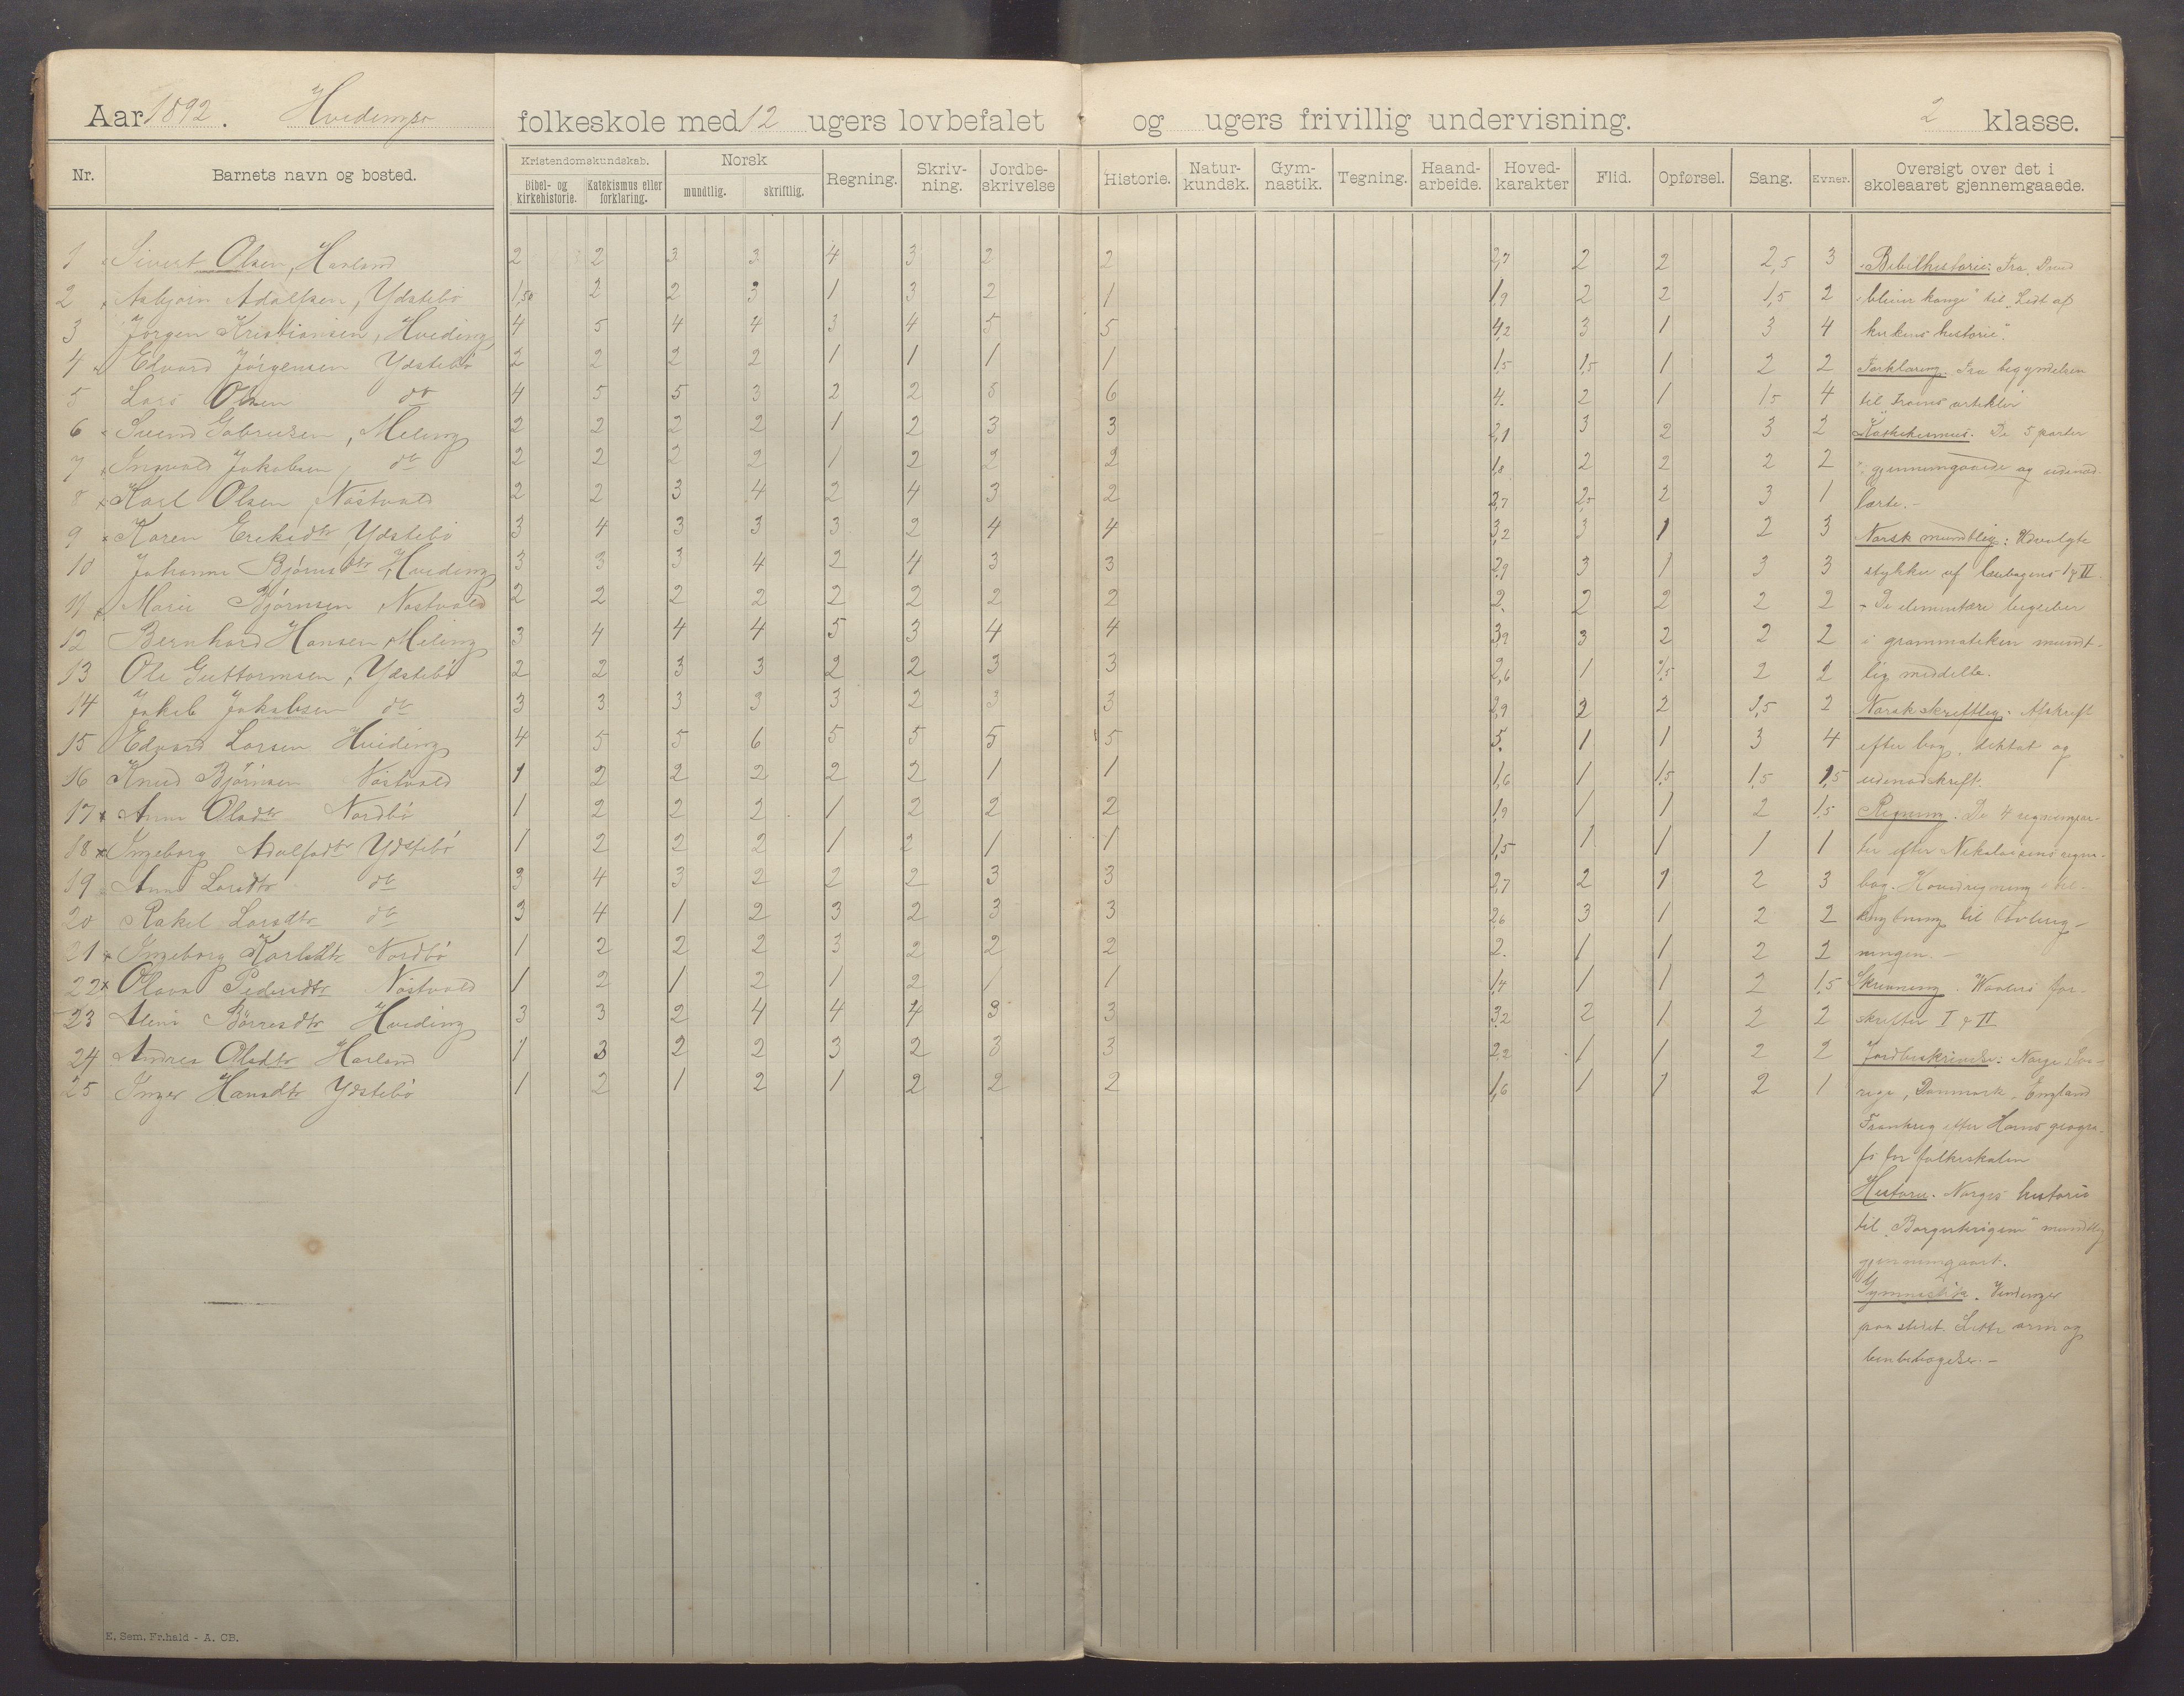 Aar 1892. Hvidingsø folkeskole med 12 ugers lovbefalet og ugers frivillig undervisning. 2 klasse.
Nr. Barnets navn og bosted. Kristendomskundskab. Bibel- og kirkehistorie. Katekismus eller forklaring. Norsk mundtlig. skriftlig. Regning. Skriv-ning. Jordbe-skrivelse Historie. Natur-kundsk. Gym-nastik. Tegning. Haand-arbeide. Hoved-karakter Flid. Opførsel. Sang. Evner. Oversigt over det i skoleaaret gjennemgaaede.
1 Sivert Olsen, Harland 2 2 3 3 4 3 2 2 2,7 2 2 2,5 3
2 Asbjørn Adolfsen, Ydstebø 1,50 2 2 3 1 3 2 1 1,9 2 2 1,5 2
3 Jørgen Kristiansen, Hviding 4 5 4 4 3 4 5 5 4,2 3 1 3 4
4 Edvard Jørgensen Ydstebø 2 2 2 2 1 1 1 1 1,5 1,5 1 2 2
5 Lars Olsen do 4 5 5 3 2 2 5 6 4. 2 1 1,5 4
6 Svend Gabrielsen, Meling 2 2 2 2 1 2 3 3 2,1 3 2 3 2
7 Ingvald Jakobsen, do 2 2 2 2 1 2 2 2 1,8 2 2 2 2
8 Karl Olsen, Nøstvold 2 2 3 4 2 4 3 2 2,7 2,5 2 3 1
9 Karen Eriksdtr, Ydstebø 3 4 3 3 3 2 4 4 3,2 3 1 2 3
10 Johanne Bjørnsdtr, Hviding 3 3 3 4 2 4 3 3 2,9 3 1 3 3
11 Marie Bjørnsen, Nøstvold 2 2 2 2 2 2 2 2 2. 2 2 2 2
12 Bernhard Hansen, Meling 3 4 4 4 5 3 4 4 3,9 3 2 2 2
13 Ole Guttormsen, Ydstebø 2 2 3 3 2 2 3 3 2,6 1 1,5 2 2
14 Jakob Jakobsen do 3 3 3 3 3 2 3 3 2,9 2 2 1,5 2
15 Edvard Larsen Hviding 4 5 5 6 5 5 5 5 5. 1 1 3 4
16 Knud Bjørnsen Nøstvold 1 2 2 2 2 2 1 1 1,6 1 1,5 1,5 1,5
17 Anna Olsdtr Nordbø 1 2 2 2 1 2 2 2 1,9 1 1 2 1,5
18 Ingeborg Adolfsdtr Ydstebø 1 2 2 2 1 2 1 1 1,5 1 1 1 1
19 Anna Larsdtr do 3 4 3 2 2 2 3 3 2,7 2 1 2 3
20 Rakel Larsdtr do 3 4 1 2 3 2 3 3 2,6 3 1 2 2
21 Ingeborg Karlsdtr Nordbø 1 2 2 2 3 2 2 2 2. 1 1 2 2
22 Olava Pedersdtr Nøstvold 1 2 1 2 1 2 1 1 1,4 1 1 2 1,5
23 Børresdtr Hviding 3 3 2 4 4 4 3 3 3,2 2 1 2 2
24 Andrea Olsdtr Harland 1 3 2 2 3 2 3 3 2,2 1 1 2 2
25 Inger Hansdtr Ydstebø 1 2 1 2 1 2 2 2 1,6 1 1 2 1
Bibelhistorie: Fra David
bliver konge" til „Lidt af
kirkens historie".
Forklaring. Fra begyndelsen
til „Troens artikler"
Kathekismus. De 5 parter
gjennemgaaede og udenad-
lærte. –
Norsk mundtlig: Udvalgte
stykker af læsebogens I & II.
– De elementære begreber
i grammatiken mundt-
lig meddelte.
Norsk skriftlig. Afskrift
efter bog, diktat og
udenadskrift.
Regning. De 4 regningsar-
ter efter Nikolaisens regne-
bog. Hovedregning i til-
knytning til tavlereg-
ningen. –
Skrivning. for-
skrifter I & II
Jordbeskrivelse: Norge, Sve-
rige, Danmark, England
Frankrig efter Horns geogra-
fi for folkeskolen
Historie. Norges historie
til „Borgerkrigene" mundtlig
gjennemgaaet.
Gymnastik. Vendinger
paa stedet. Lette arm og
benbevægelser. –
E. Sem, Fr.hald - A. CB.